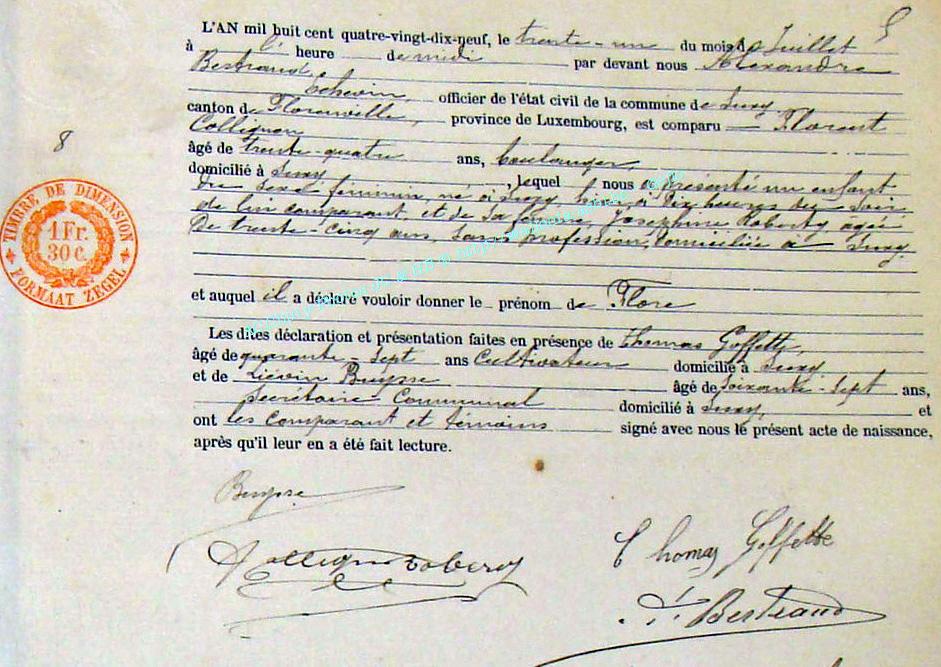 L'AN mil huit cent quatre-vingt-dix-neuf, le trente-un du mois de Juillet
à l' heure de midi par devant nous Alexandre
Bertrand,
Echevin, officier de l'état civil de la commune de Suxy,
canton de Florenville, province de Luxembourg, est comparu Florent
Collignon
âgé de trente-quatre ans, boulanger,
domicilié à Suxy, lequel nous a présenté un enfant
du sexe féminin, né à Suxy, hier à dix heures du soir
de lui comparant, et de sa femme, Joséphine Roberty agée
de trente-cinq ans, sans profession, domiciliée à Suxy.
et auquel il a déclaré vouloir donner le prénom de Flore
Les dites déclaration et présentation faites en présence de Thomas Goffette,
âgé de quarante-sept ans Cultivateur domicilié à Suxy
et de Liévin Buysse âgé de soixante-sept ans,
Secrétaire Communal domicilié à Suxy, et
ont les comparant et témoins signé avec nous le présent acte de naissance,
après qu'il leur en a été fait lecture.
8
TIMBRE DE DIMENSION
1 Fr.
30 C.
FORMAAT ZEGEL
Buysse
Collignon Roberty
Thomas Goffette
A. Bertrand